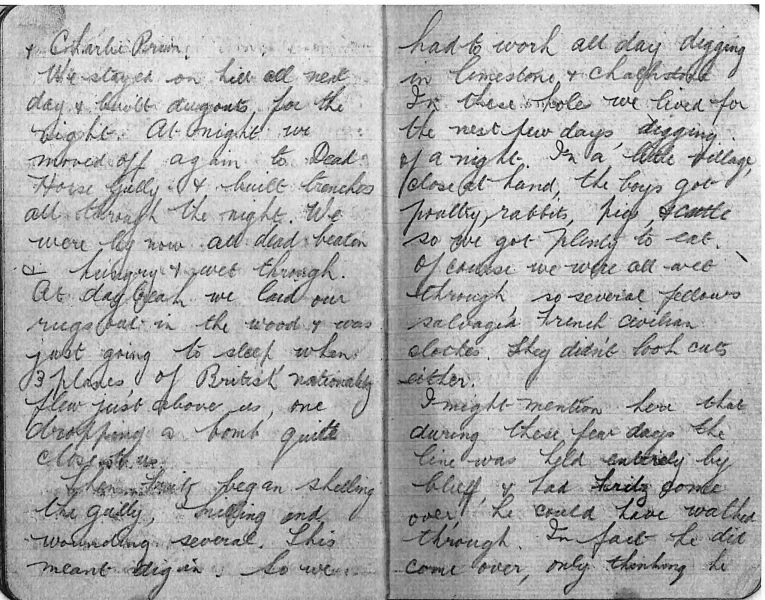 & Charlie Brown.
We stayed on hill all next
day & built dugouts, for the
night. At night we
moved off again to Dead
Horse Gully & built trenches
all through the night. We
were by now all dead beaten
& hungry & wet through.
At day break we laid our
rugs out in the wood & was
just going to sleep when
3 planes of British nationality
flew just above us, one
dropping a bomb quite
close to us.
Then Fritz began shelling
the gully, killing and
wounding several. This
meant dig in. So we
had to work all day digging
in limestone & chalkstone
In these holes we lived for
the next few days digging
of a night. In a little village,
close at hand, the boys got
poultry, rabbits, pigs, & cattle
so we got plenty to eat.
Of course we were all wet
through so several fellows
salvaged French civilian
clothes. They didn't look cuts
either.
I might mention here that
during these few days the
line was held entirely by
bluff, & had Fritz come
over, he could have walked
through. In fact he did
come over, only thinking he